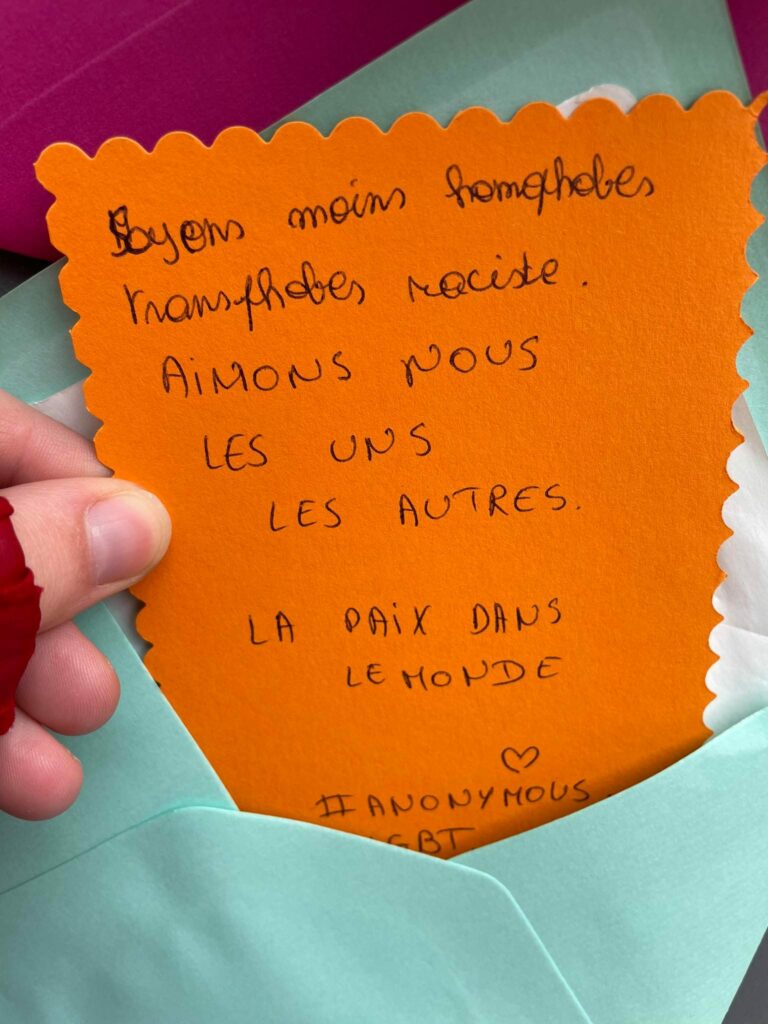 Soyons moins homophobes
transphobes raciste.
AiMONS NOUS
LES UNS
LES AUTRES.
LA PAiX DANS
LE MONDE
♡
#ANONYMOUS.
GBT